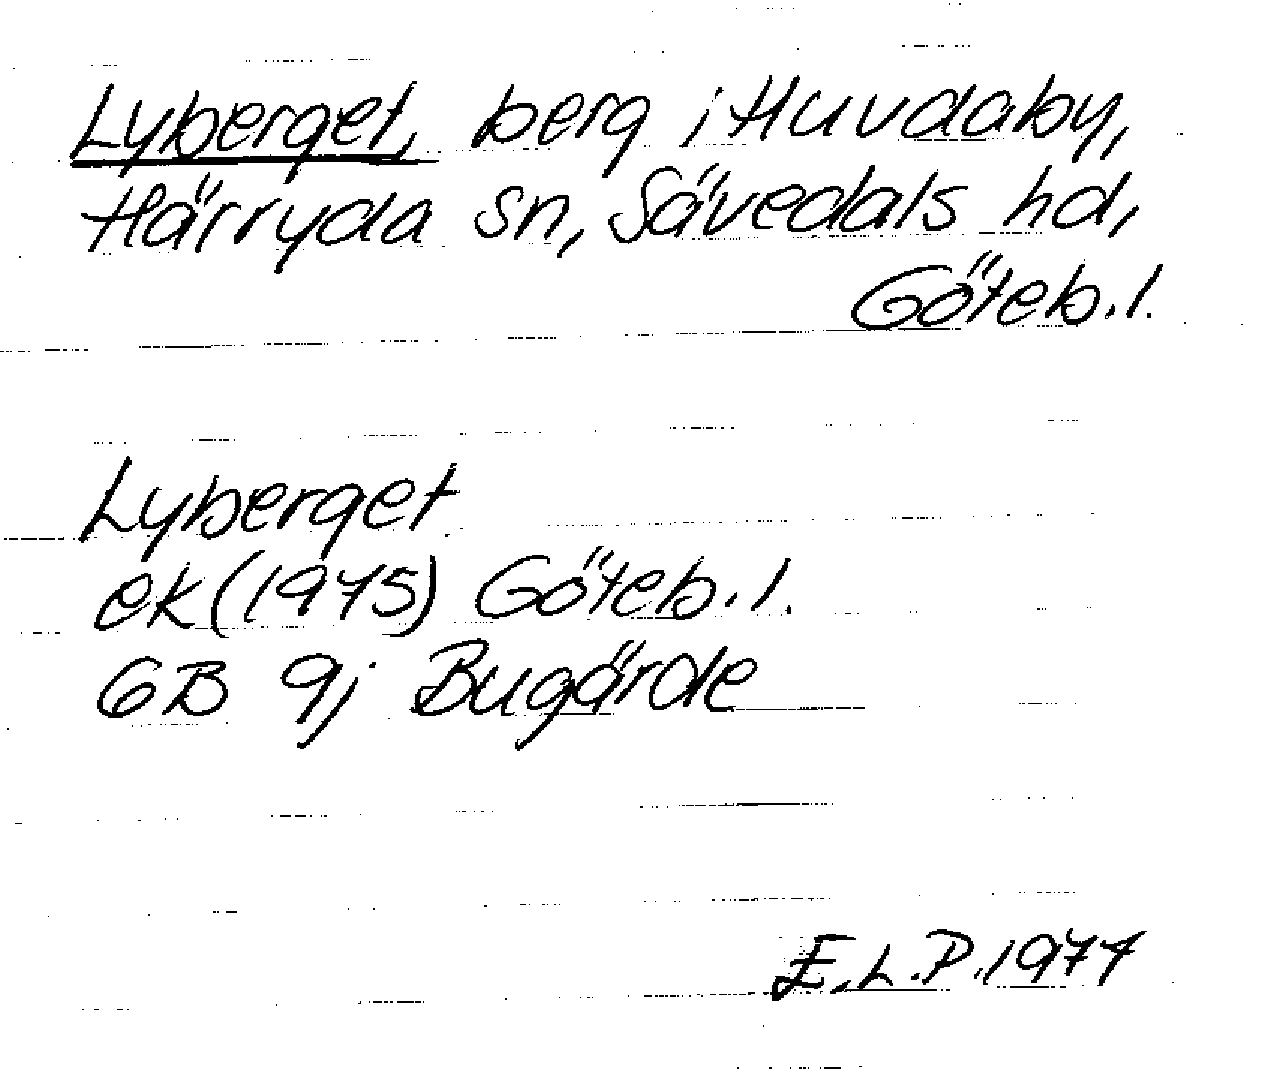 Lyberget, berg i Huvdaby,
Härryda sn, Sävedals hd,
Göteb.l.
Lyberget
ek (1975) Göteb.l.
6B 9j Bugärde
E.L.P. 1977